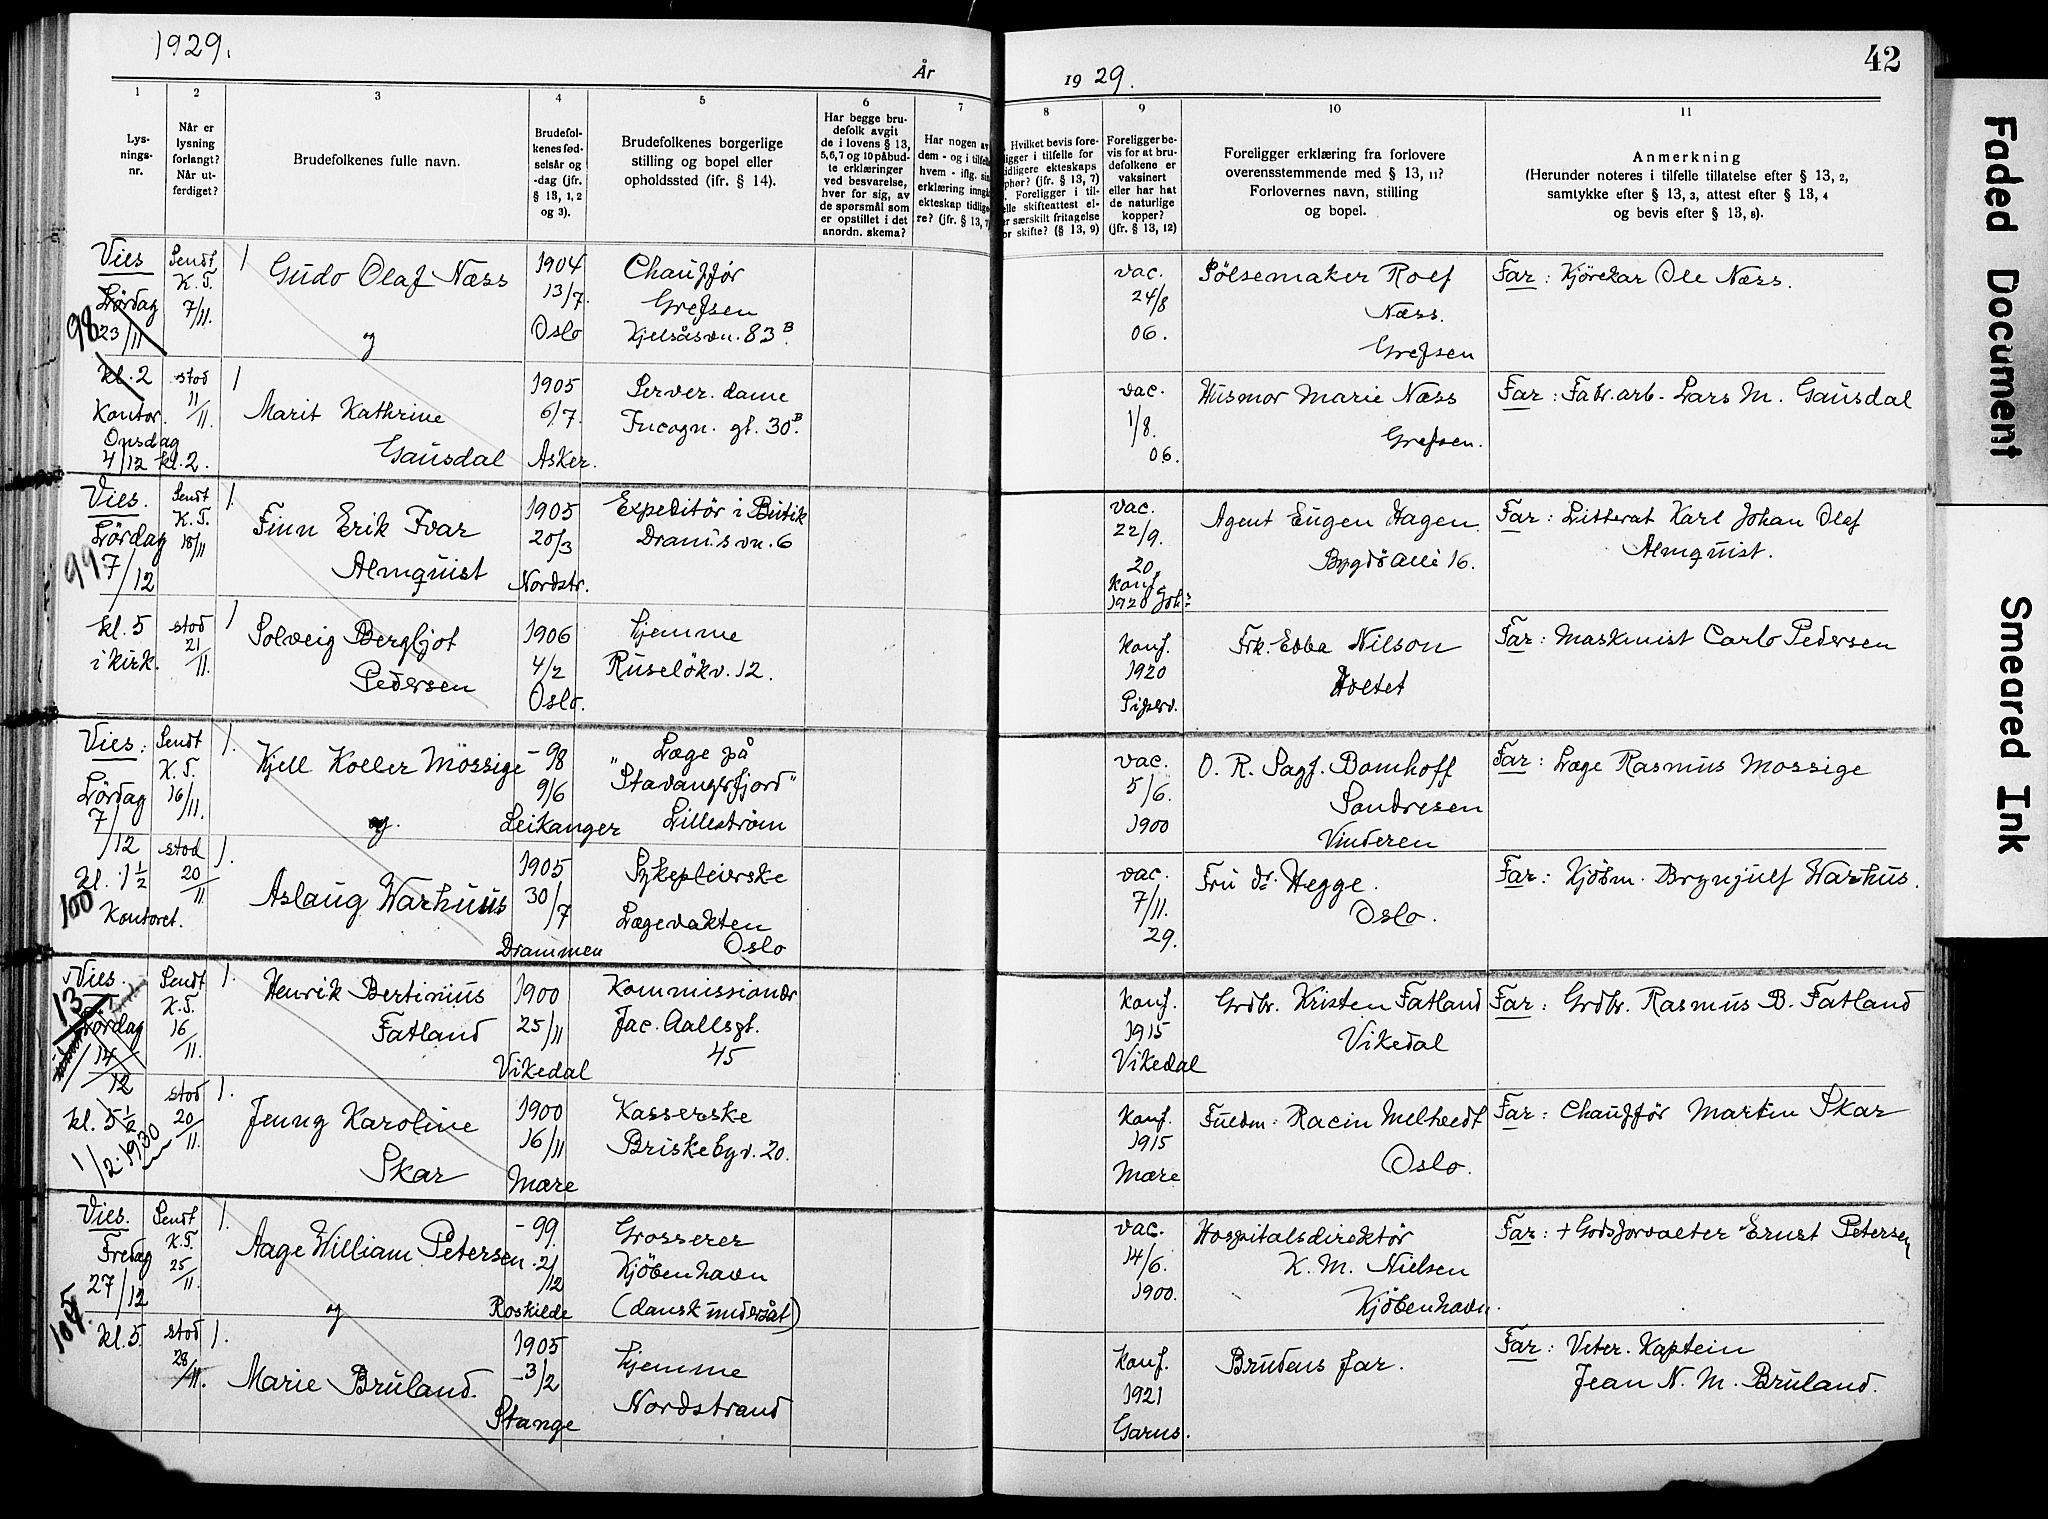 1929.
År
1929.
42
1
2
3
4
5
6
7
8
9
10
11
Lys-
nings-
nr.
Når er
lysning
forlangt?
Når ut-
ferdiget?
Brudefolkenes fulle navn.
Brudefol-
kenes fød-
selsår og
-dag (jfr.
§ 13, 1, 2
og 3).
Brudefolkenes borgerlige
stilling og bopel eller
opholdssted (ifr. § 14).
Har begge bru-
defolk avgit
de i lovens § 13,
5,6,7 og 10 påbud-
te erklæringer
ved besvarelse,
hver for sig, av
de spørsmål som
er opstillet i det
anordn. skema?
Har nogen av
dem - og i tilfelle
hvem - iflg. sin
erklæring inngå
ekteskap tidlige-
re? (jfr. § 13, 7)
Hvilket bevis fore-
ligger i tilfelle for
tidligere ekteskaps
ophør? (jfr. § 13, 7)
Foreligger i til-
elle skifteattest el-
er særskilt fritagelse
or skifte? (§ 13, 9)
Foreligger be-
vis for at bru-
defolkene er
vaksinert
eller har hat
de naturlige
kopper?
(jfr. § 13, 12)
Foreligger erklæring fra forlovere
overensstemmende med § 13, 11?
Forlovernes navn, stilling
og bopel.
Anmerkning
(Herunder noteres i tilfelle tillatelse efter § 13, 2,
samtykke efter § 13, 3, attest efter § 13, 4
og bevis efter § 13, 8).
98
Vies
Lördag
23/11
kl. 2
Kontor.
Onsdag
4/12 kl. 2.
Sendt
K. T.
7/11.
stod
11/11.
1
Gudo Olaf Næss
og
1904
13/7.
Oslo
Chauffør
Grefsen
Kjelsåsvn. 83 B.
vac.
24/8
06.
Pölsemaker Rolf
Næss.
Grefsen
Far: Kjörekar Ole Næss.
1
Marit Kathrine
Gausdal
1905
6/7.
Asker.
Server. dame
Incogn. gt. 30 B.
vac.
1/8.
06.
Husmor Marie Næss
Grefsen.
Far: Fabr. arb. Lars M. Gausdal
99
Vies.
Lördag
7/12
kl. 5
i kirk.
Sendt
K. T.
18/11
stod
21/11.
1.
Finn Erik Ivar
Almquist
1905
20/3
Nordstr.
Expeditør i Butik
Dram's vn. 6
vac.
22/9.
20.
Konf.
1920 Joh:
Agent Eugen Hagen
Bygdö Alle 16.
Far: Litterat Karl Johan Olof
Almquist.
1
Solveig Bergljot
Pedersen
1906
4/2
Oslo.
hjemme
Ruselökv. 12.
Konf.
1920
Piperv.
Frk. Ebba Nilson
Holtet
Far: Maskinist Carlo Pedersen
100
Vies:
Lördag
7/12
kl. 1 1/2
Kontoret.
Sendt
K. T.
16/11.
stod
20/11
1.
Kjell Koller Mossige
og
-98
9/6
Leikanger
Læge på
"Stavangerfjord"
Lilleström
vac.
5/6.
1900
O. R. Sagf. Bomhoff
Sandresen
Vinderen
Far: Læge Rasmus Mossige
1.
Aslaug Warhuus
1905
30/7
Drammen
Sykepleierske
Lægevakten
Oslo
vac.
7/11.
29.
Fru dr. Hegge.
Oslo.
Far: Kjöbm. Brynjulf Warhus.
13
Vies.
Lördag
14/12
kl. 5 1/2
1/2. 1930
Sendt
K. T.
16/11.
stod
20/11.
1.
Henrik Bertinius
Fatland
1900
25/11
Vikedal
Kommissionær
Jac. Aallsgt.
45
Konf.
1915
Vikedal
Grdbr. Kristen Fatland
Vikedal
Far: Grdbr. Rasmus B. Fatland
1.
Jenny Karoline
Skar
1900
16/11
Mære
Kassererske
Briskebyv. 20.
Konf.
1915
Mære
Fuldm: Racin Melhedt
Oslo.
Far: Chauffør Martin Skar
Vies.
Fredag
27/12
kl. 5.
Sendt
K. T.
25/11.
stod
28/11.
1.
Aage William Petersen
og
-99.
21/12
Roskilde
Grosserer
Kjöbenhavn
(dansk undersåt)
vac.
14/6.
1900.
Hospitalsdirektør
K. M. Nielsen
Kjöbenhavn.
Far: + Godsforvalter Ernst Petersen
1.
Marie Bruland.
1905
-3/2
Stange
hjemme
Nordstrand
Konf.
1921
Garns.
Brudens far.
Far: Veter. Kaptein
Jean N. M. Bruland.
Faded Document
Smeared Ink